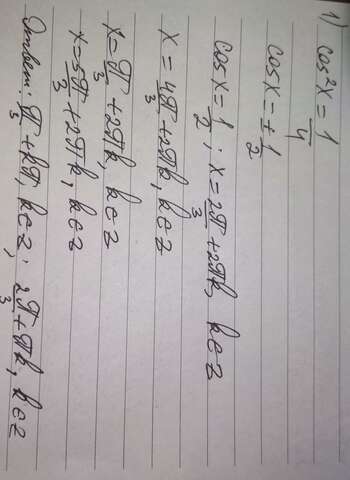 1) cos²x = 1/4
cosx = ± 1/2
cosx = 1/2 ; x = 2π/3 + 2πk, k∈z
x = 4π/3 + 2πk, k∈z
x = π/3 + 2πk, k∈z
x = 5π/3 + 2πk, k∈z
Ответ: π/3 + kπ, k∈z; 2π/3 + πk, k∈z